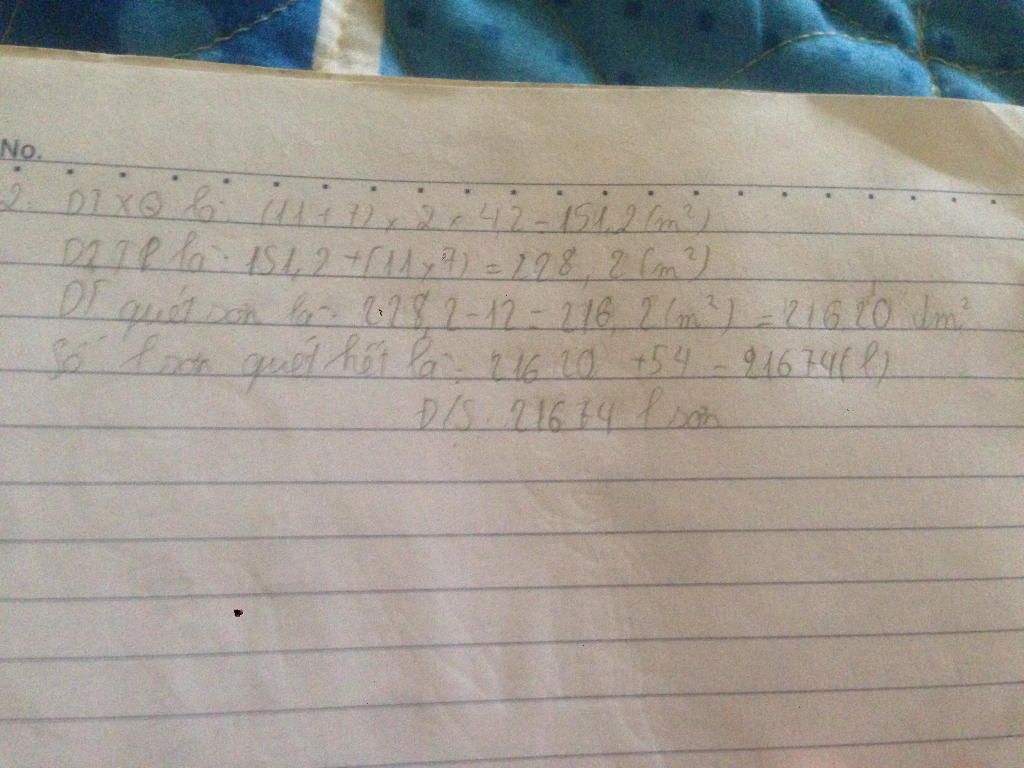 No.
2. DTXQ là: (11 + 7) x 2 x 42 = 151,2 (m²)
DTTP là: 151,2 + (11 x 7) = 228,2 (m²)
DT quét sơn là: 228,2 - 12 = 216,2 (m²) = 21620 dm²
Số l sơn quét hết là: 21620 + 54 = 21674 (l)
Đ/S: 21674 l sơn